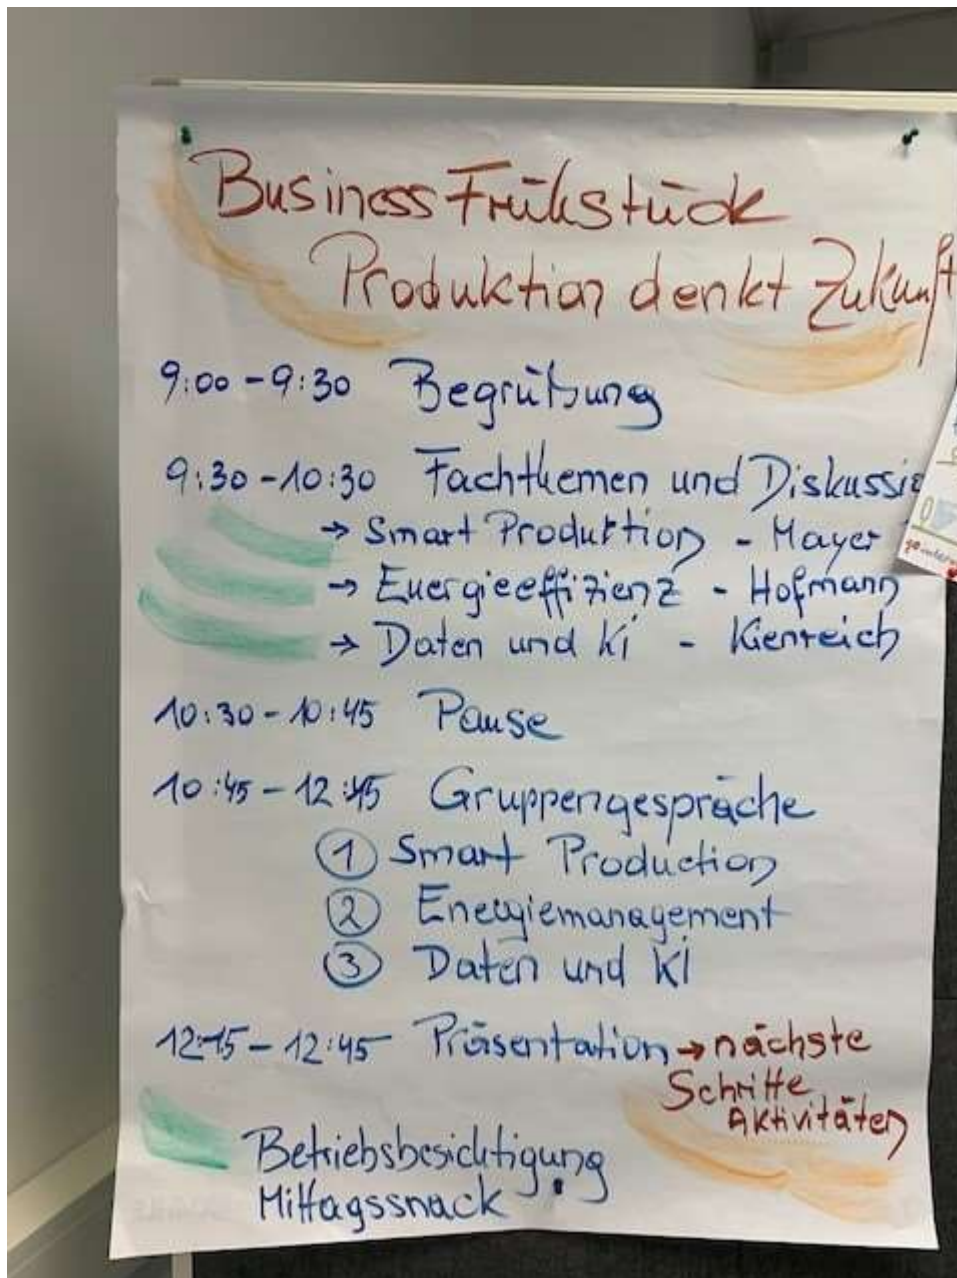 Business Frühstück
Produktion denkt Zukunft
9:00 - 9:30 Begrüßung
9:30 - 10:30 Fachthemen und Diskussio
→ Smart Produktion - Mayer
→ Energieeffizienz - Hofmann
→ Daten und Ki - Kienreich
10:30 - 10:45 Pause
10:45 - 12:15 Gruppengespräche
① Smart Production
② Energiemanagement
③ Daten und KI
12:15 - 12:45 Präsentation → nächste
Schritte
Aktivitäten
Betriebsbesichtigung
Mittagssnack